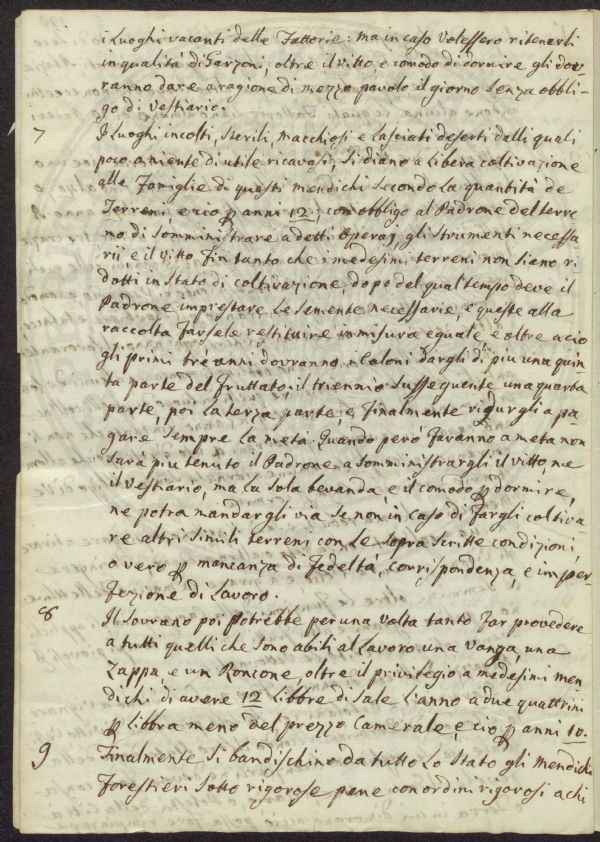 i Luoghi vacanti delle Fattorie: ma in caso Volessero ritenerli
in qualità di Garzoni, oltre il vitto, e comodo di dormire gli dov-
ranno dare a ragione di mezzo pavolo il giorno senza obbli-
go di Vestiario.
7 I Luoghi incolti, sterili, Macchiosi e lasciati deserti dalli quali
poco, o niente di utile ricavasi, Si diano a Libera coltivazione
alle Famiglie di questi mendichi secondo La quantità de
Terreni, e ciò ꝑ anni 12; con obbligo al Padrone del terre
no di Somministrare a detti Operaj gli strumenti necessa
rii e il vitto fin tanto che i medesimi terreni non siano ri
dotti in stato di coltivazione; dopo del qual tempo deve il
Padrone imprestare Le Semente necessarie, e queste alla
raccolta farsele restituire in misura eguale, e oltre a ciò
gli primi tré anni dovranno i Coloni dargli di più una quin
ta parte del fruttato; il triennio Susseguente una quarta
parte, poi La terza parte, e Finalmente ridurgli a pa
gare Sempre La metà. Quando però faranno a metà non
sarà più tenuto il Padrone a somministrargli il vitto, ne
il Vestiario, ma La Sola bevanda, e il comodo ꝑ dormire,
ne potrà mandargli via Se non in Caso di fargli coltiva-
re altri Simili terreni con Le Sopra Scritte condizioni,
o vero ꝑ mancanza di Fedeltà, corrispondenza, e imper
fezione di Lavoro.
8 Il Sovrano poi Potrebbe per una Volta tanto far provedere
a tutti quelli che sono abili al Lavoro una Vanga, una
Zappa, e un Roncone, oltre il privilegio a medesimi men
dichi di avere 12 Libbre di Sale L'anno a due quattrini
ꝑ Libbra meno del prezzo Camerale, e ciò ꝑ anni 10.
9 Finalmente Si bandischino da tutto Lo Stato gli Mendichi
Forestieri Sotto rigorose pene con ordini rigorosi a chi